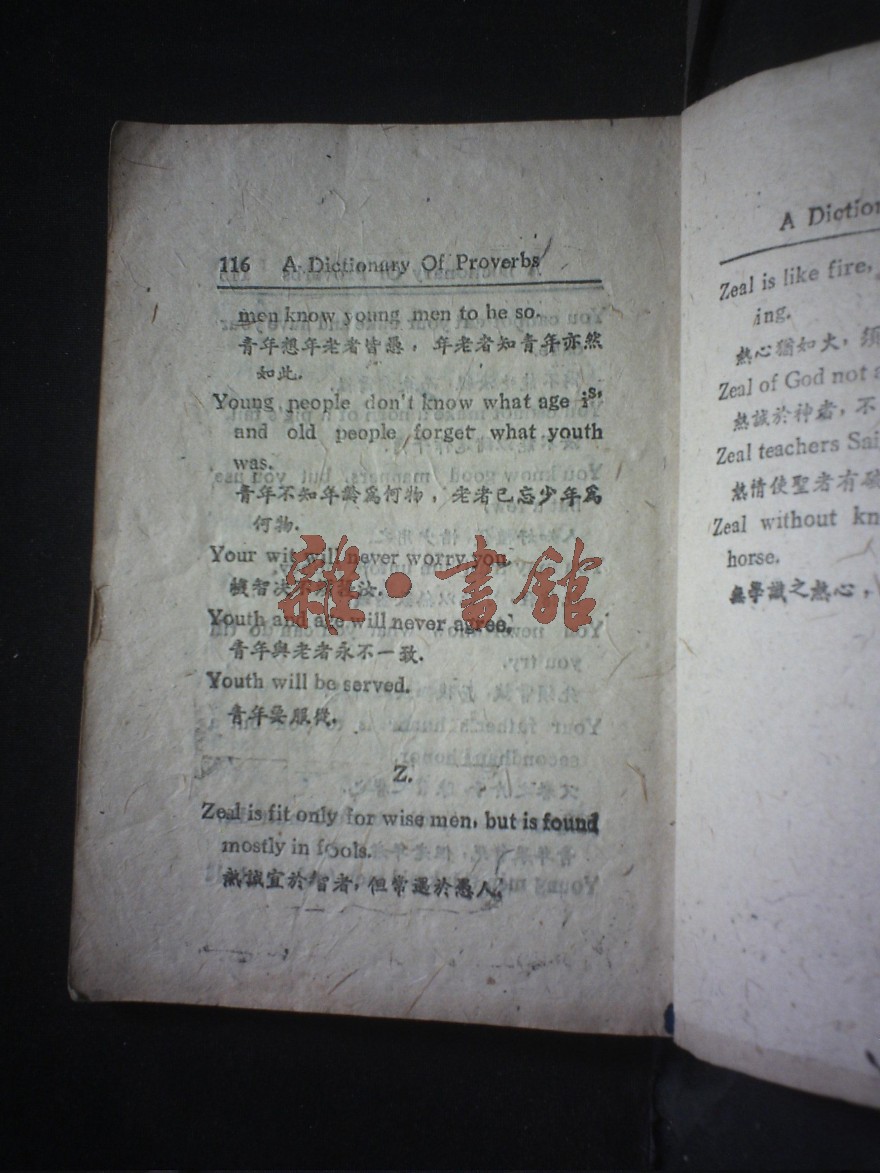 116 A Dictionary Of Proverbs
men know young men to be so.
青年想年老者皆愚，年老者知青年亦然
如此.
Young people don't know what age is,
and old people forget what youth
was.
青年不知年齡爲何物，老者已忘少年爲
何物.
Your wit will never worry you.
機智决不
汝.
Youth and age will never agree.
青年與老者永不一致.
Youth will be served.
青年要服從.
Z.
Zeal is fit only for wise men, but is found
mostly in fools.
熱誠宜於智者，但常遇於愚人.
雜·書館
A Diction
Zeal is like fire,
ing.
熱心猶如火，須
Zeal of God not a
熱誠於神者，不
Zeal teachers Sai
熱情使聖者有破
Zeal without kn
horse.
無學識之熱心，